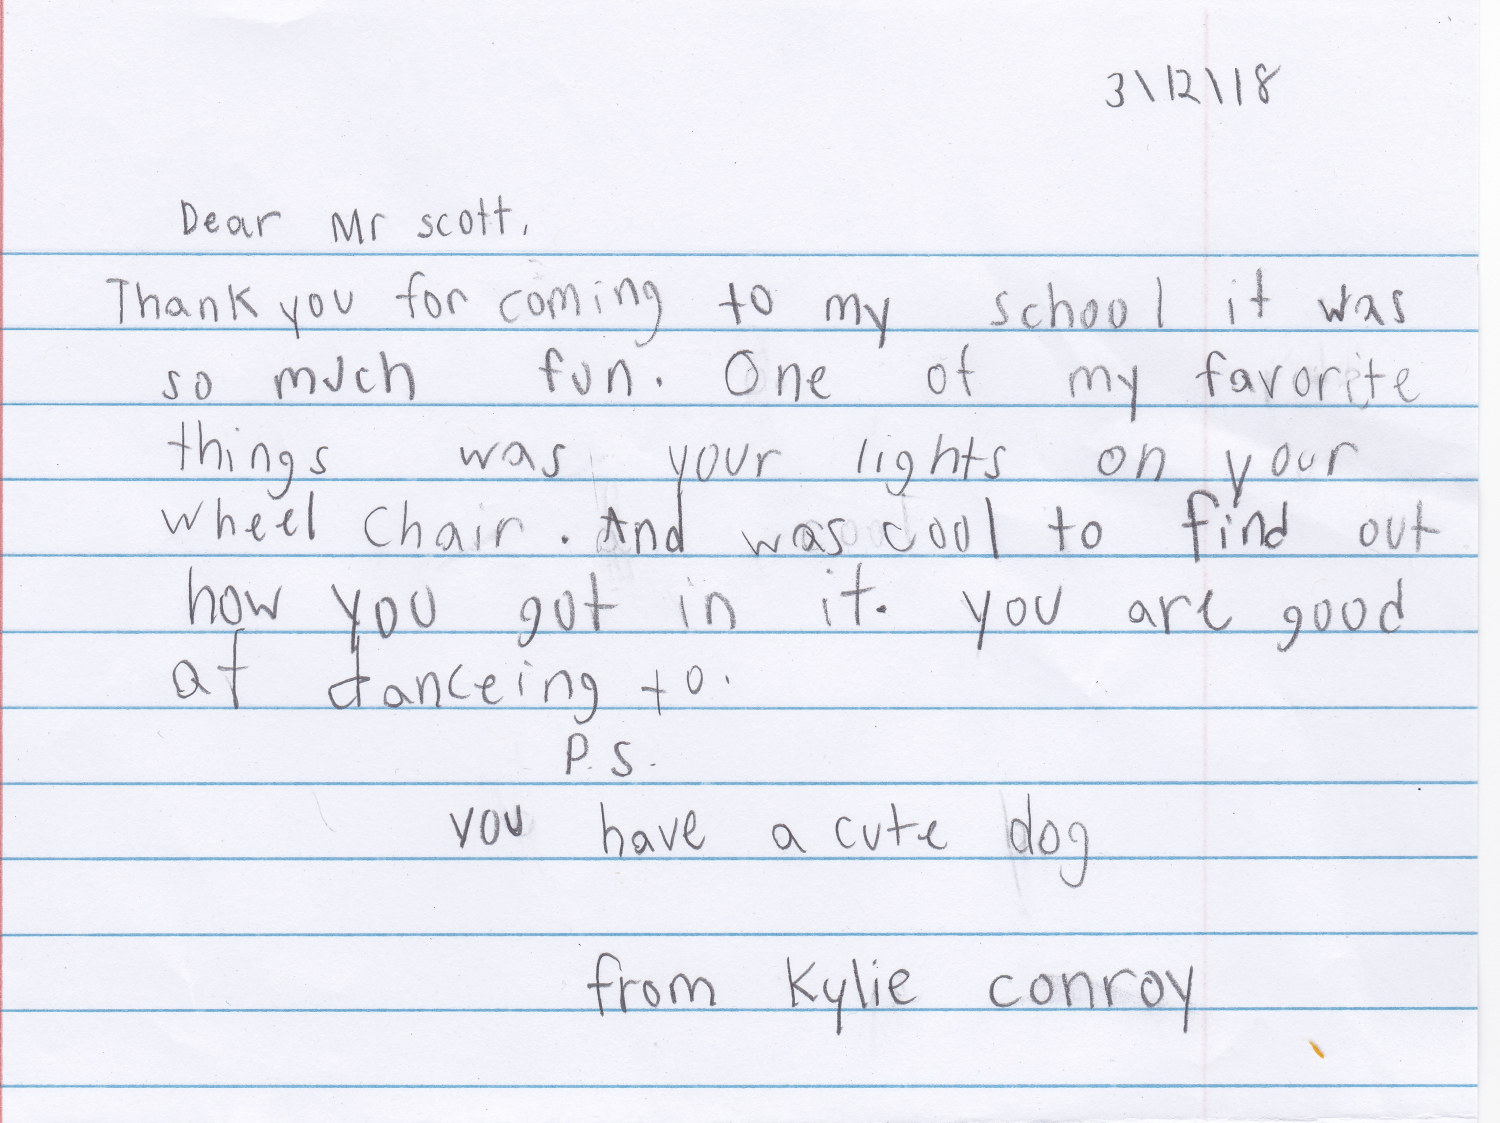 3\12\18
Dear Mr scott,
Thank you for coming to my school it was
so much fun. One of my favorite
things was your lights on your
wheel chair. And was cool to find out
how you got in it. you are good
at danceing to.
P.S.
you have a cute dog
from Kylie conroy